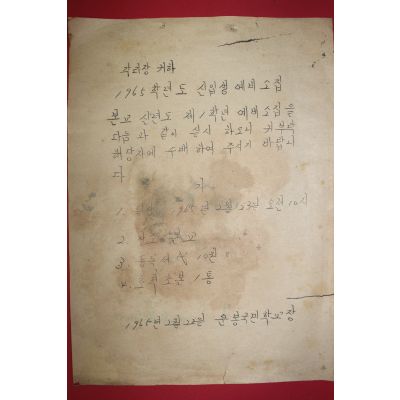 각리장 귀하
1965학년도 신입생 예비소집
본교 신년도 제1학년 예비소집을
다음과 같이 실시 하오니 귀부락
해당자에 수배하여 주시기 바랍니
다
1. 1965년 2월 23일 오전 10시
2. 본교
3. 10원
4. 초본 1통
1965년 2월 22일 운봉국민학교장